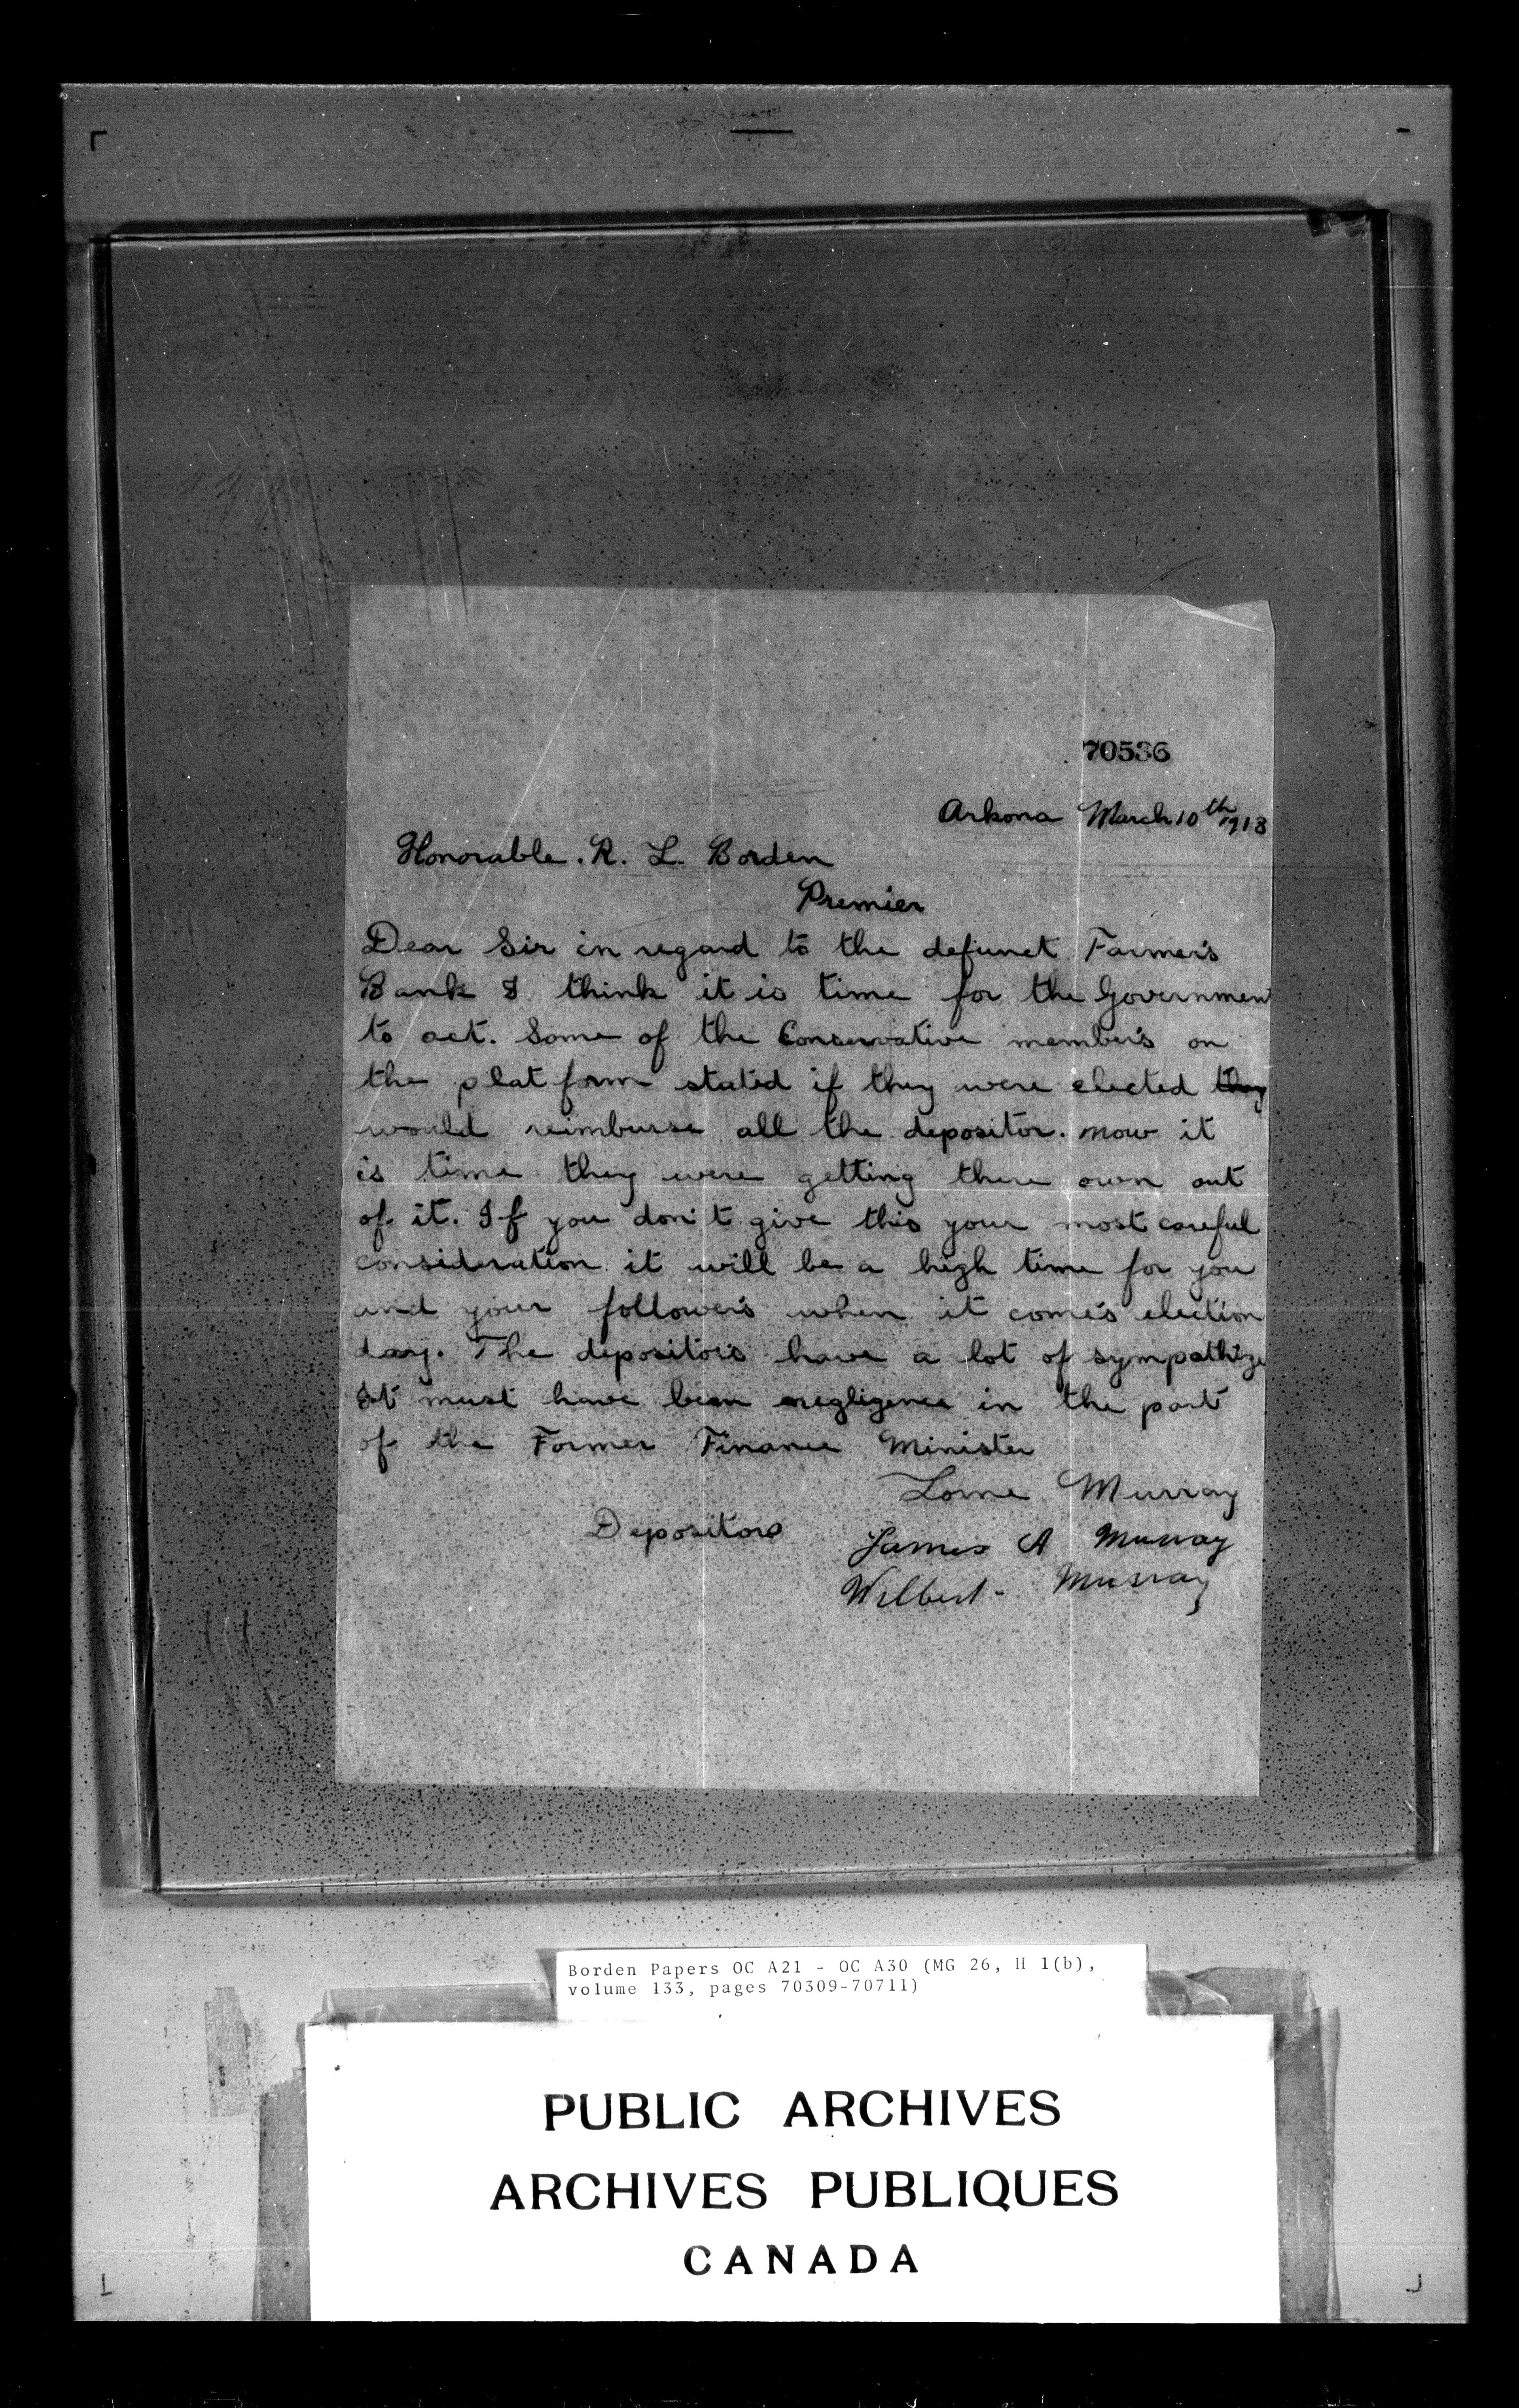 70536
Arkona March 10th 1913
Honorable. R. L. Borden
Premier
Dear Sir in regard to the defunct Farmer's
Bank I think it is time for the Governmen
to act. Some of the Conservative member's on
the plat form stated if they were elected they
would reimburse all the depositor. now it
is time they were getting there own out
of it. If you don't give this your most careful
consideration it will be a high time for you
and your follower's when it come's election
day. The depositor's have a lot of sympathize
It must have been negligence in the part
of the Former Finance Minister
Lorne Murray
Depositors James A Murray
Wilbert Murray
Borden Papers OC A21 - OC A30 (MG 26, H 1(b),
volume 133, pages 70309-70711)
PUBLIC ARCHIVES
ARCHIVES PUBLIQUES
CANADA